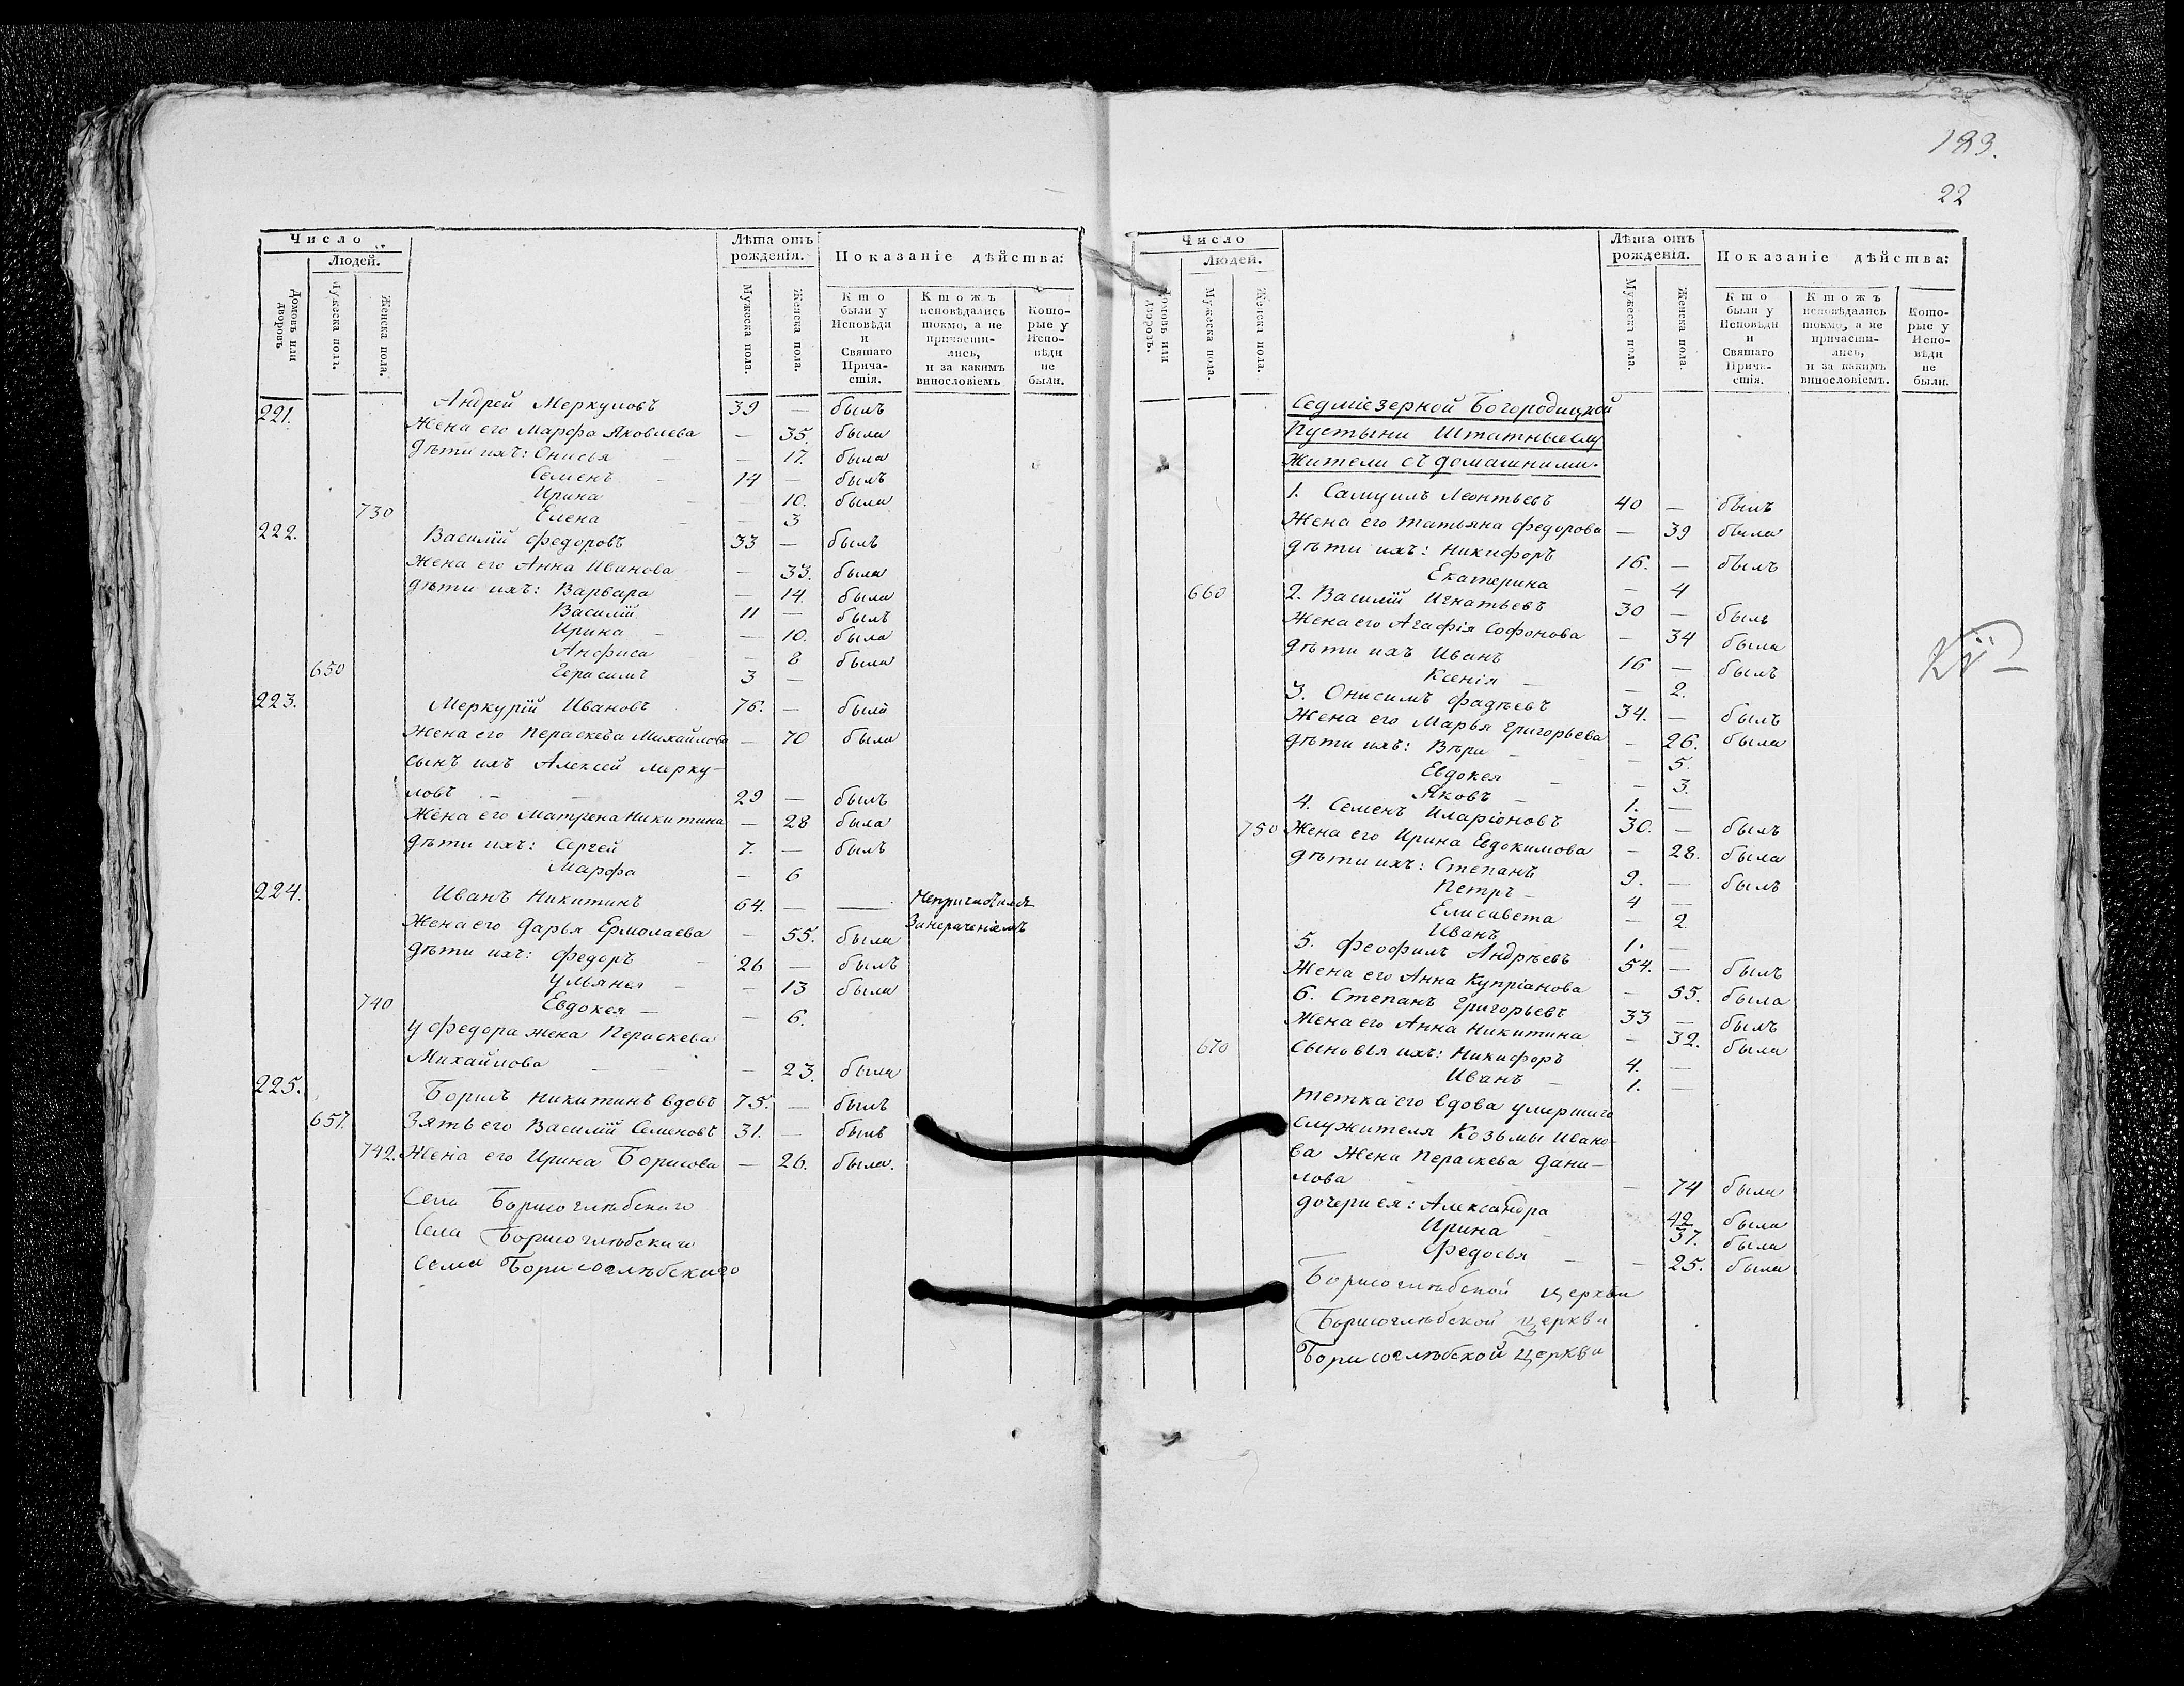 Число
Людей.
Домовъ или дворовъ.
Мужеска пола.
Женска пола.
Лѣта отъ рожденія.
Мужеска пола.
Женска пола.
Показаніе дѣйства:
Кто были у Исповѣди и Святаго Причастія.
Ктожъ исповѣдались токмо, а не причастились, и за какимъ винословіемъ
Которые у Исповѣди не были.
221. Андрей Меркуловъ 39 — былъ
Жена его Марфа Яковлева — 35. была
Дѣти ихъ: Онисья — 17. была
Семенъ 14 — былъ
Ирина 10. была
730 Елена — 3
222. Василій Федоровъ 33 — былъ
Жена его Анна Иванова — 33. была
Дѣти ихъ: Варвара — 14. была
Василій 11 — былъ
Ирина — 10. была
Анфиса — 8 была
650 Герасимъ 3 —
223. Меркурій Ивановъ 76. — былъ
Жена его Пераскева Михайлова — 70 была
сынъ ихъ Алексей Мерку-
ловъ 29 — былъ
Жена его Матрена Никитина — 28 была
Дѣти ихъ: Сергей 7. — былъ
Марфа — 6
224. Иванъ Никитинъ 64. — —
Жена его Дарья Ермолаева — 55. была
Дѣти ихъ: Федоръ 26 — былъ
Ульяна — 13 была
740 Евдокея — 6.
у Федора жена Пераскева
Михайлова — 23. была
225. Борисъ Никитинъ вдовъ 75. — былъ
657. Зять его Василій Семеновъ 31. — былъ
742. Жена его Ирина Борисова — 26. была.
Села Борисоглѣбскаго
Села Борисоглѣбскаго
Села Борисоглѣбскаго
22
Число
Людей.
Домовъ или дворовъ.
Мужеска пола.
Женска пола.
Лѣта отъ рожденія.
Мужеска пола.
Женска пола.
Показаніе дѣйства:
Кто были у Исповѣди и Святаго Причастія.
Ктожъ исповѣдались токмо, а не причастились, и за какимъ винословіемъ.
Которые у Исповѣди не были.
Седміезерной Богородицкой
Пустыни Штатные слу
жители съ домашними.
1. Самуилъ Леонтьевъ 40 — былъ
Жена его Татьяна Федорова — 39 была
Дѣти ихъ: Никифоръ 16. — былъ
Екатерина — 4
660 2. Василій Игнатьевъ 30 — былъ
Жена его Агафія Софонова — 34 была
Дѣти ихъ Иванъ 16 — былъ
Ксенія — 2.
3. Онисимъ Фадѣевъ 34. — былъ
Жена его Марья Григорьева — 26. была
Дѣти ихъ: Вѣра — 5.
Евдокея — 3.
Яковъ 1. —
4. Семенъ Иларіоновъ 30. — былъ
750 Жена его Ирина Евдокимова — 28. была
Дѣти ихъ: Степанъ 9. — былъ
Петръ 4 —
Елисавета — 2.
Иванъ 1. —
5. Феофилъ Андрѣевъ 54. — былъ
Жена его Анна Купріанова — 55. была
6. Степанъ Григорьевъ 33 — былъ
Жена его Анна Никитина — 32. была
670 Сыновья ихъ: Никифоръ 4. —
Иванъ 1. —
Тетка его вдова умершаго
служителя Козьмы Ивано-
ва Жена Пераскева Дани-
лова — 74 была
дочери ея: Александра 42 была
Ирина 37. была
Федосья — 25. была
Борисоглѣбской церкви
Борисоглѣбской церкви
Борисоглѣбской церкви